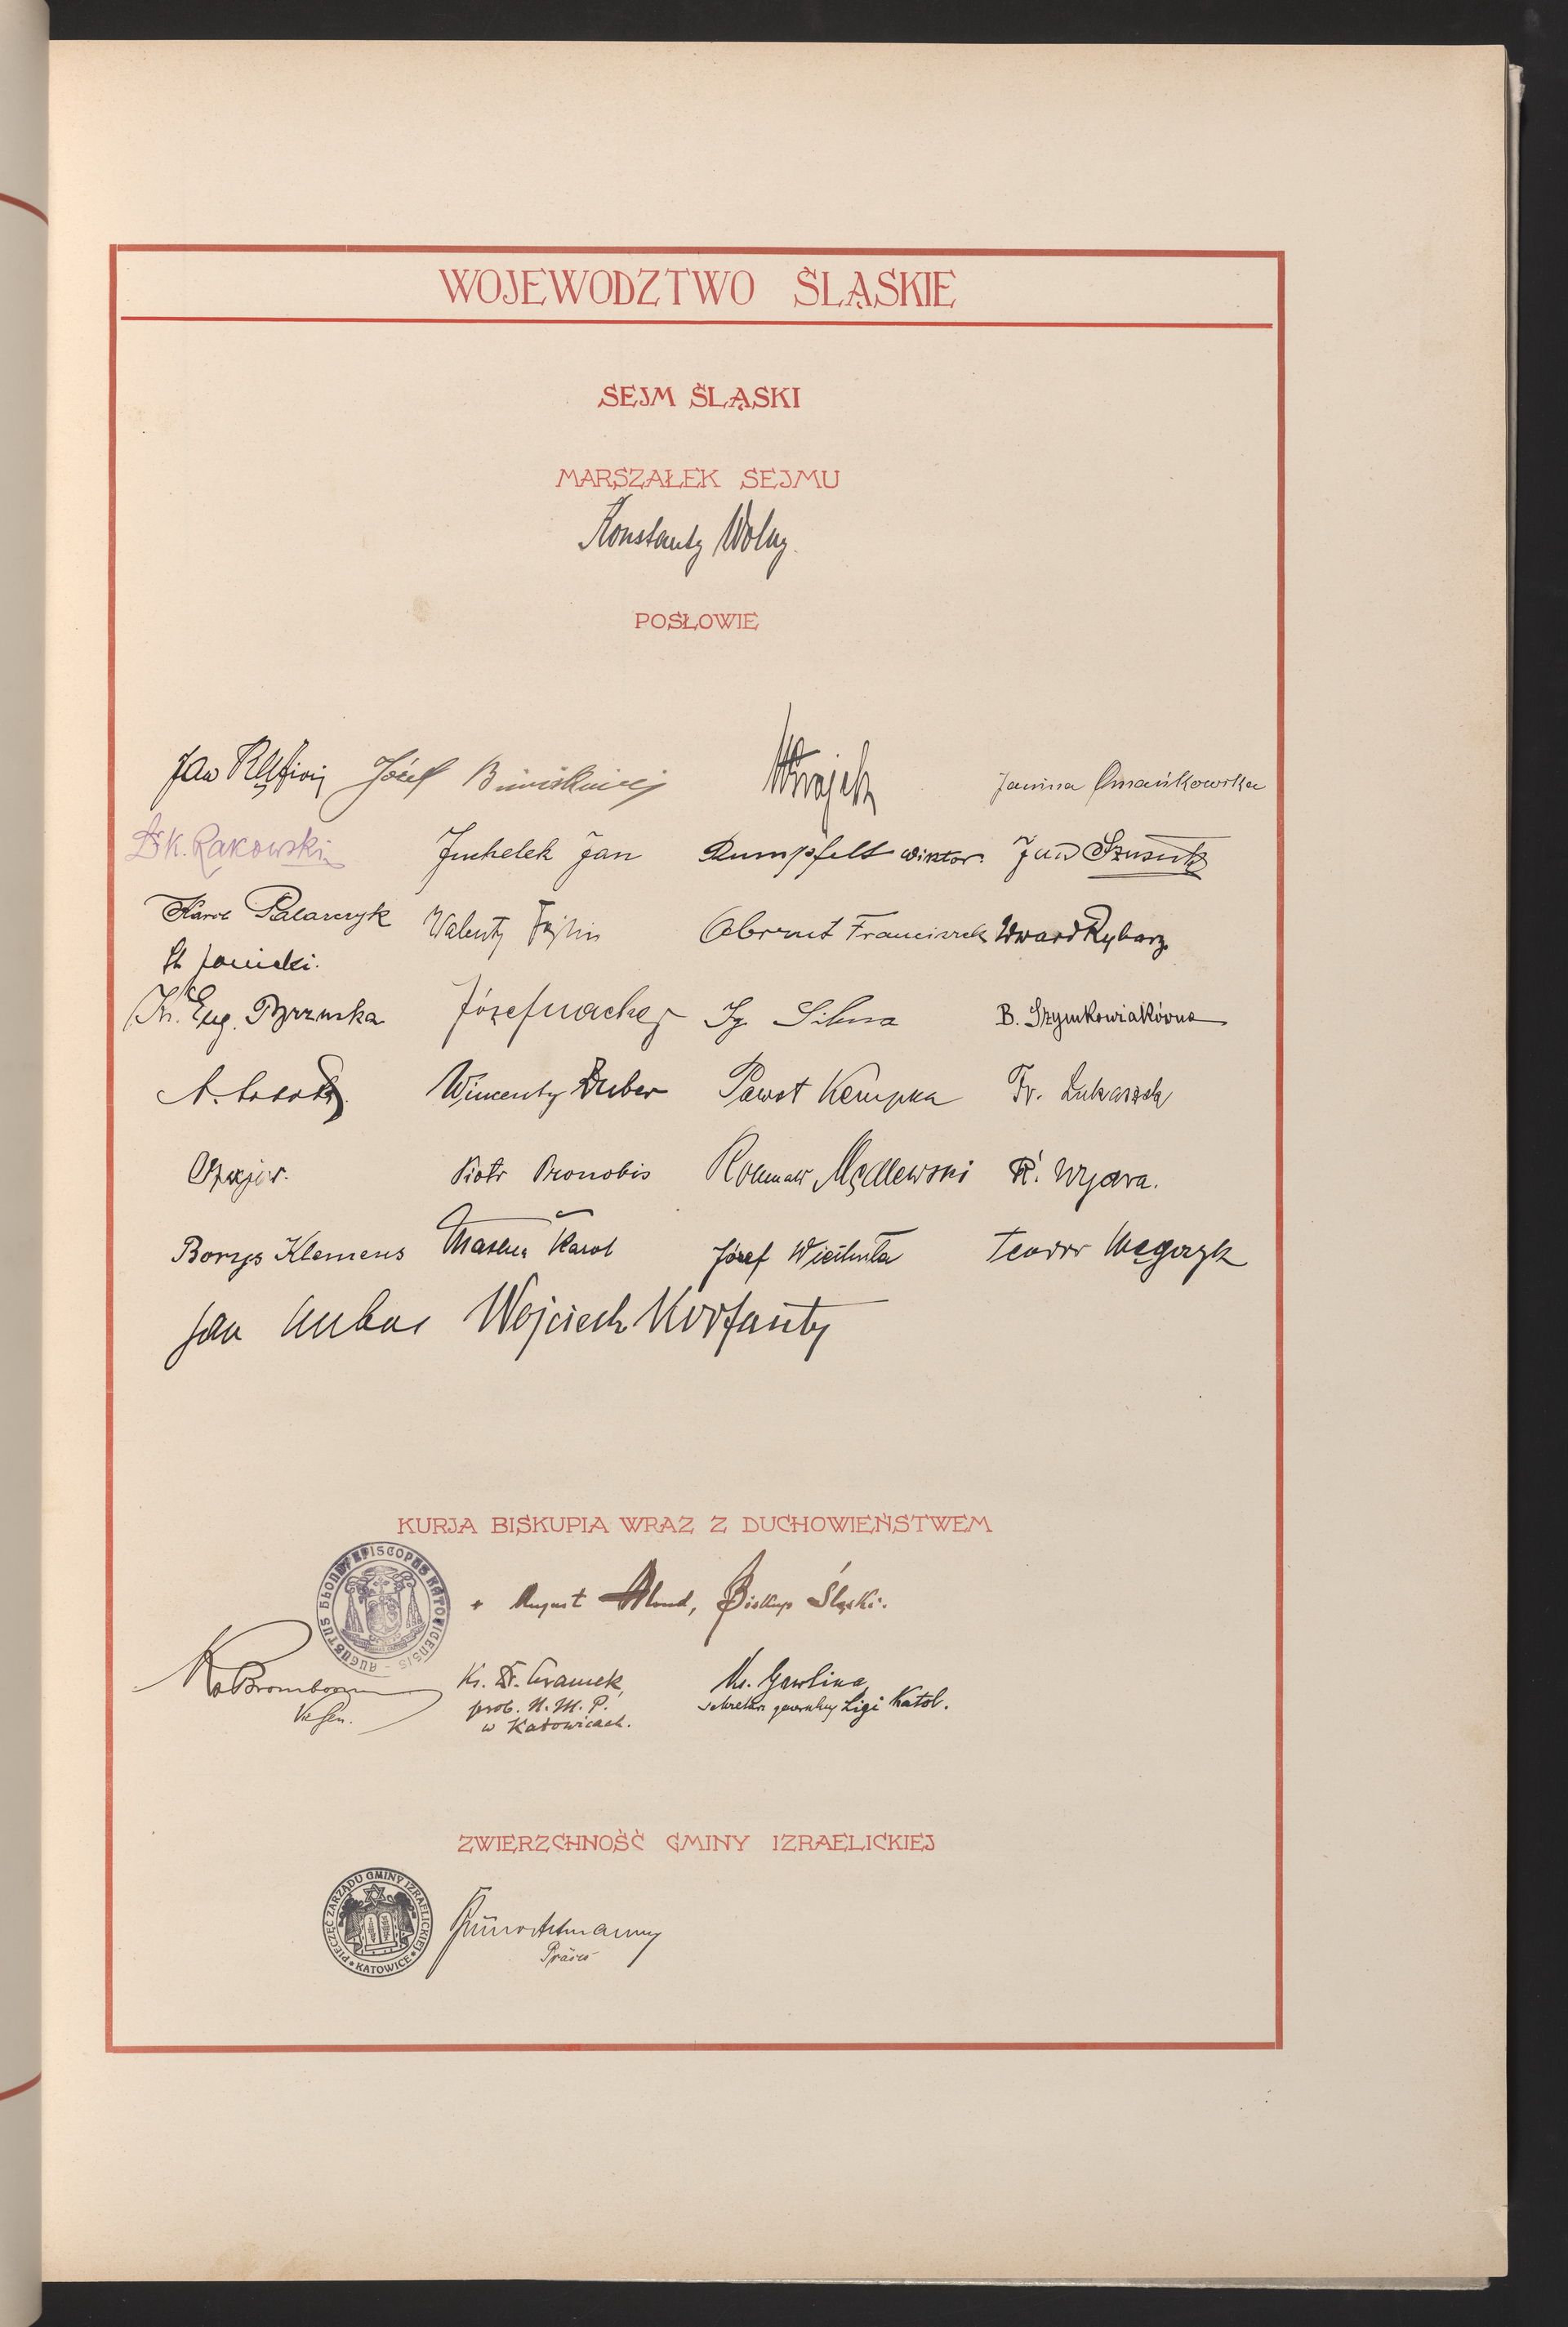 WOJEWODZTWO ŚLĄSKIE
SEJM ŚLĄSKI
MARSZAŁEK SEJMU
Konstanty Wolny.
POSŁOWIE
Jan Kędzior Józef Biniszkiewicz Janina Omańkowska
Dr K. Rakowski Juchelek Jan Rumpfelt Wiktor. Jan Szuścik
Karol Palarczyk Walenty Fojkis Obrzut Franciszek Edward Rybarz
St. Janicki.
Ks. Eug. Brzuska Józef Machej Ig. Sikora B. Szymkowiakówna
Wincenty Paweł Kempka Fr.
Piotr Pronobis Romuald Mędlewski
Borys Klemens Maślna Karol Józef Wiechuła Teodor Węgrzyk
Jan Kubas Wojciech Korfanty
KURJA BISKUPIA WRAZ Z DUCHOWIEŃSTWEM
AUGUSTUS HLOND EPISCOPUS KATOVICENSIS
+ August Hlond, Biskup Śląski.
Bromboszcz
Vic Gen.
Ks. Dr. Kramek,
prob. N. M. P.
w Katowicach.
Ks. Gawlina
sekretarz generalny Ligi Katol.
ZWIERZCHNOŚĆ GMINY IZRAELICKIEJ
PIECZĘĆ ZARZĄDU GMINY IZRAELICKIEJ
KATOWICE
Bruno Altmann
Präses